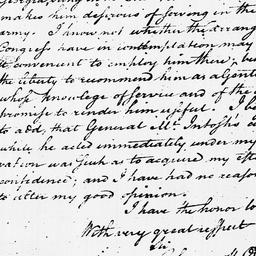 makes him desirous of serving in the
army. I know not whether the arrang
Congress have in contemplation may
it convenient to employ him there; bu
the liberty to recommend him as a Gentl
whose knowledge of service and of the
promise to render him useful. I b
to add, that General McIntosh's
while he acted immediately under my
vation was such as to acquire my
confidence; and I have had no reason
to alter my good opinion.
I have the honor to
With very great respect
Sir,